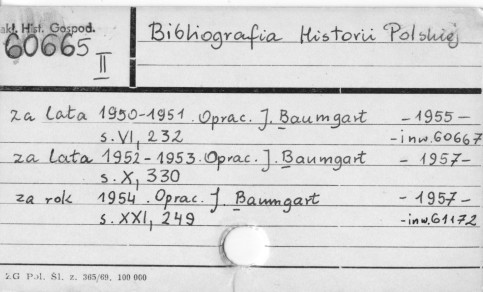 akł. Hist. Gospod.
60665
II
Bibliografia Historii Polskiej
za lata 1950-1951. Oprac. J. Baumgart - 1955 -
s. VI, 232 - inw. 60667
za lata 1952-1953. Oprac. J. Baumgart - 1957 -
s. X, 330
za rok 1954. Oprac. J. Baumgart - 1957 -
s. XXI, 249 - inw. 61172
ZG Pol. Śl. z. 365/69. 100 000